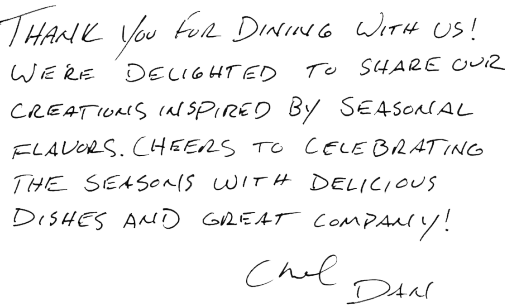 THANK YOU FOR DINING WITH US!
WE'RE DELIGHTED TO SHARE OUR
CREATIONS INSPIRED BY SEASONAL
FLAVORS. CHEERS TO CELEBRATING
THE SEASONS WITH DELICIOUS
DISHES AND GREAT COMPANY!
Chef
DAN